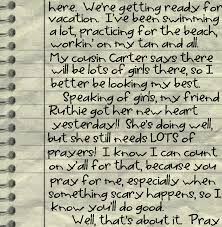 here. We're getting ready for
vacation. I've been swimming
a lot, practicing for the beach,
workin' on my tan and all.
My cousin Carter says there
will be lots of girls there, so I
better be looking my best.
Speaking of girls, my friend
Ruthie got her new heart
yesterday!! She's doing well,
but she still needs LOTS of
prayers! I know I can count
on y'all for that, because you
pray for me, especially when
something scary happens, so I
know you'll do good.
Well, that's about it. Pray